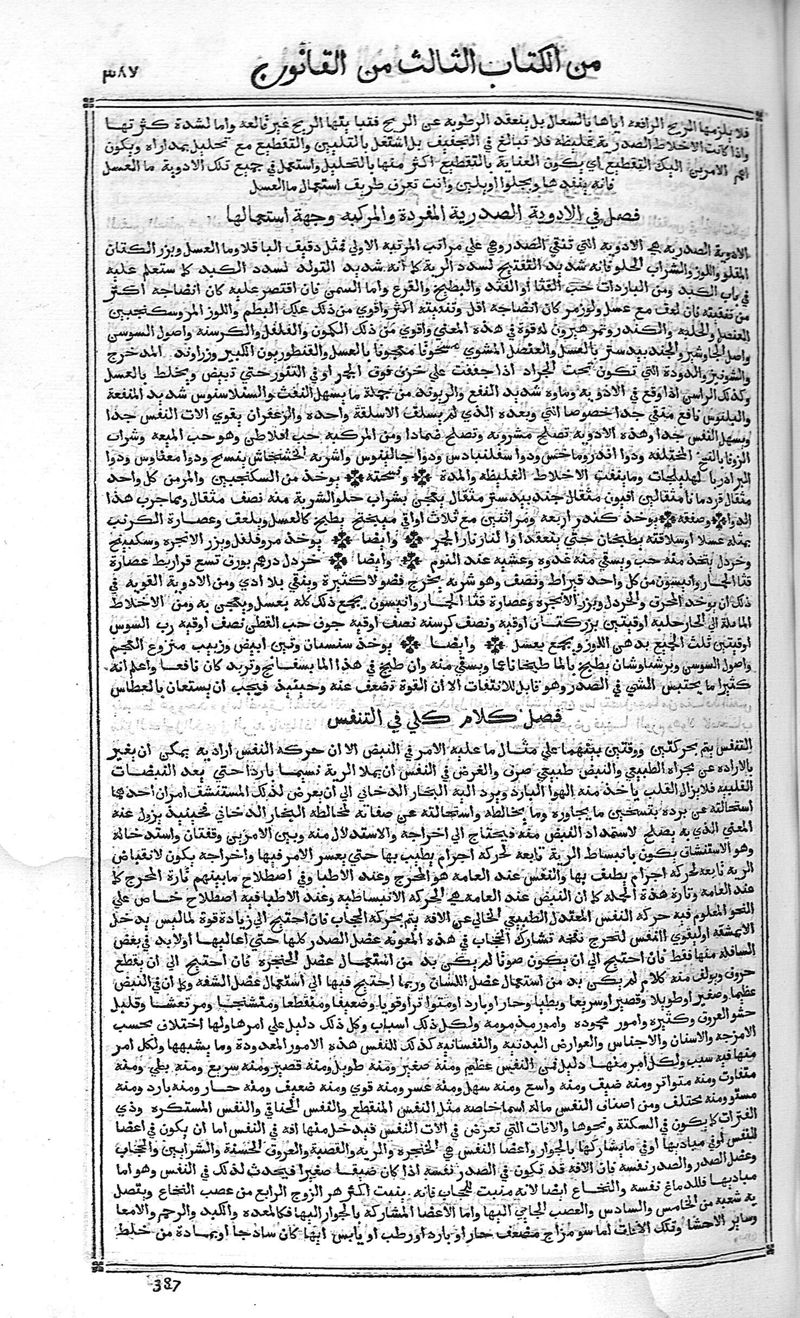 من الكتاب الثالث من القانون
٣٨٧
فلا يلزمها الريح الرافعه اياها بالسعال بل ينعقد الرطوبه عن الريح فقبا يقها الريح غير قالعه واما لشدة كثرتها
واذا كانت الاخلاط الصدرية غليظه فلا تبالغ في التجفيف بل اشتغل بالتليين والتقطيع مع تحليل بمداراه ويكون
اهم الامرين اليك التقطيع اي يكون العناية بالتقطيع اكثر منها بالتحليل واستعمل في جميع تلك الادوية ما العسل
فانه ينفدها ويجلوا ويلين وانت تعرف طريق استعمال ما العسل
فصل في الادوية الصدرية المفردة والمركبه وجهة استعمالها
الادوية الصدريه هي الادويه التي تنقي الصدر وهي علي مراتب المرتبه الاولي مثل دقيق الباقلا وما العسل وبزر الكتان
المقلو واللوز والشراب الحلو فانه شديد التفتيح لسدد الرية كما أنه شديد التولد لسدد الكبد كما ستعلم عليه
في باب الكبد ومن الباردات حب القثا او القثد والبطيخ والقرع واما السمن فان اقتصر عليه كان انضاجه اكثر
من تنقيته فان لعق مع عسل ولوز مر كان انضاجه اقل وتنقيته اكثر واقوي من ذلك علك البطم واللوز المر وسكنجبين
العنصل والحلبه والكندر وتمر هيرون له قوة في هذه المعني واقوي من ذلك الكمون والفلفل والكرسنه واصول السوسن
واصل الجاوشير والجندبيدستر بالعسل والعنصل المشوي مسحوقا معجونا بالعسل والقنطوريون الكبير وزراوند المدحرج
والشونيز والدودة التي تكون تحت الجرار اذا جففت علي خزف فوق الجمر او في التنور حتي تبيض ويخلط بالعسل
وكذلك الراسن اذا وقع في الادويه وماوه شديد النفع والريوند من جملة ما يسهل النفث والسالسالنوس شديد المنفعة
والبلبوس نافع منقي جدا خصوصا النيي وبعده الذي لم يسلق الا سلقة واحده والزعفران يقوي الات النفس جدا
ويسهل النفس جدا وهذه الادويه تصلح مشروبه وتصلح ضمادا ومن المركبه حب افلاطن وهو حب الميعه وشراب
الزوفا بالنسخ المختلفه ودوا اندروماخس ودوا سقلنبادس ودوا جالينوس واشربه الخشخاش بنسخ ودوا مغناوس ودوا
البرادريا بهليلجات وما ينفث الاخلاط الغليظه والمدة ونسخته يوخذ من السكنجبين والمر من كل واحد
مثقال قردمانا مثقالين افيون مثقال جندبيدستر مثقال يعجن بشراب حلو الشربة منه نصف مثقال ومما جرب هذا
الدوا وصفعه يوخذ كندر اربعه ومر اثنين مع ثلاث اواقي ميبختج يطبخ كالعسل ويلعق وعصارة الكرنب
بمثله عسلا او سلاقته يطبخان حتي ينعقد اوالنار نار الجمر وايضا يوخذ مر وفلفل وبزر الانجره وسكبينج
وخردل يتخذ منه حب ويسقي منه غدوه وعشيه عند النوم وايضا خردل درهم بورق تسع قراريط عصارة
قثا الحمار وانيسون من كل واحد قيراط ونصف وهو شربه يخرج فضولا كثيرة وينقي بلا اذي ومن الادوية القويه في
ذلك ان يوخذ المحرق والخردل وبزر الانجره وعصارة قثا الحمار وانيسون يجمع ذلك كله بعسل ويعجن به ومن الاخلاط
المايلة الي الحار حلبه اوقيتين بزر كتان اوقيه ونصف كرسنه نصف اوقيه جوف حب القطن نصف اوقيه رب السوس
اوقيتين تلت الجميع بدهن اللوز ويجمع بعسل وايضا يوخذ سنستان وتين ابيض وزبيب منزوع العجم
واصول السوسن وبرشياوشان يطبخ بالما طبخا ناعما ويسقي منه وان طبخ في هذا الما بسفانج وتربد كان نافعا واعلم انه
كثيرا ما يحتبس الشي في الصدر وهو قابل للانتفاث الا ان القوة تضعف عنه وحينيذ فيجب ان يستعان بالعطاس
فصل كلام كلي في التنفس
التنفس يتم بحركتين ووقتين بينهما علي مثال ما عليه الامر في النبض الا ان حركة النفس اراديه يمكن أن يغير
بالاراده عن مجراه الطبيعي والنبض طبيعي صرف والغرض في النفس ان يملا الرية نسيما باردا حتي يعد النبضات
القلبيه فلا يزال القلب ياخذ منه الهوا البارد ويرد اليه البخار الدخاني الي أن يعرض لذلك المستنشق امران احدهما
استحالته عن برده بتسخين ما يجاوره وما يخالطه واستحالته عن صفايه لمخالطه البخار الدخاني فحينيذ يزول عنه
المعني الذي به يصلح لاستمداد النبض منه فيحتاج الي اخراجه والاستدلال منه وبين الامرين وقفتان واستدخاله
وهو الاستنشاق يكون بانبساط الرية تابعه لحركة اجرام يطيف بها حتي يعسر الامر فيها واخراجه يكون لانقباض
الرية تابعه لحركة اجرام يطيف بها والنفس عند العامه هو المخرج وعند الاطبا وفي اصطلاح ما بينهم تارة المخرج كما
عند العامه وتارة هذه الجمله كما ان النبض عند العامه هي الحركة الانبساطيه وعند الاطبا فيه اصطلاح خاص علي
النحو المعلوم فيه حركة النفس المعتدل الطبيعي الخالي عن الافه يتم بحركة الحجاب فان احتيج الي زيادة قوة لما ليس يدخل
الا بمشقه او ليقوي النفس لتخرج نفخه تشارك الحجاب في هذه المعونه عضل الصدر كلها حتي اعاليها او لا بد في بعض
السافله منها فقط فان احتيج الي ان يكون صوتا لم يكن بد من استعمال عضل الحنجره فان احتيج الي ان يقطع
حروف ويولف منه كلام لم يكن بد من استعمال عضل اللسان وربما احتيج فيها الي استعمال عضل الشفه وكما ان في النبض
عظيما وصغيرا وطويلا وقصيرا وسريعا وبطيا وحارا وباردا ومتواترا وقويا وضعيفا ومنقطعا ومتشنجا ومرتعشا وقليل
حشو العروق وكثيره وامور محموده وامور مذمومه ولكل ذلك اسباب وكل ذلك دليل علي امر هاولها اختلاف بحسب
الامزجه والاسنان والاجناس والعوارض البدنيه والنفسانيه كذلك للنفس هذه الامور المعدودة وما يشبهها ولكل امر
منها فيه سبب ولكل امر منها دليل فمن النفس عظيم ومنه صغير ومنه طويل ومنه قصير ومنه سريع ومنه بطي ومنه
متفاوت ومنه متواتر ومنه ضيق ومنه واسع ومنه سهل ومنه عسر ومنه قوي ومنه ضعيف ومنه حار ومنه بارد ومنه
مستو ومنه مختلف ومن اصناف النفس ما له اسما خاصه مثل النفس المنقطع والنفس الخناقي والنفس المستكره وذي
الفترات كما يكون في السكتة ونحوها والافات التي تعرض في الات النفس فيدخل منها افه في النفس اما ان يكون في اعضا
النفس او في مباديها او في ما يشاركها بالجوار واعضا النفس هي الحنجره والريه والقصبه والعروق الخشنة والشرايين والحجاب
وعضل الصدر والصدر نفسه فان الافه قد يكون في الصدر نفسه اذا كان ضيقا صغيرا فيحدث لذلك في النفس وهو اما
مباديها فالدماغ نفسه والنخاع ايضا لانه منبت للحجاب فانه ينبت اكثره من الزوج الرابع من عصب النخاع ويتصل
به شعبه من الخامس والسادس والعصب الجاي اليها واما الاعضا المشاركة بالجوار اليها فكالمعده والكبد والرحم والامعا
وساير الاحشا وتلك الافات اما سو مزاج مضعف حار او بارد او رطب او يابس ايها كان ساذجا او بمادة من خلط
387